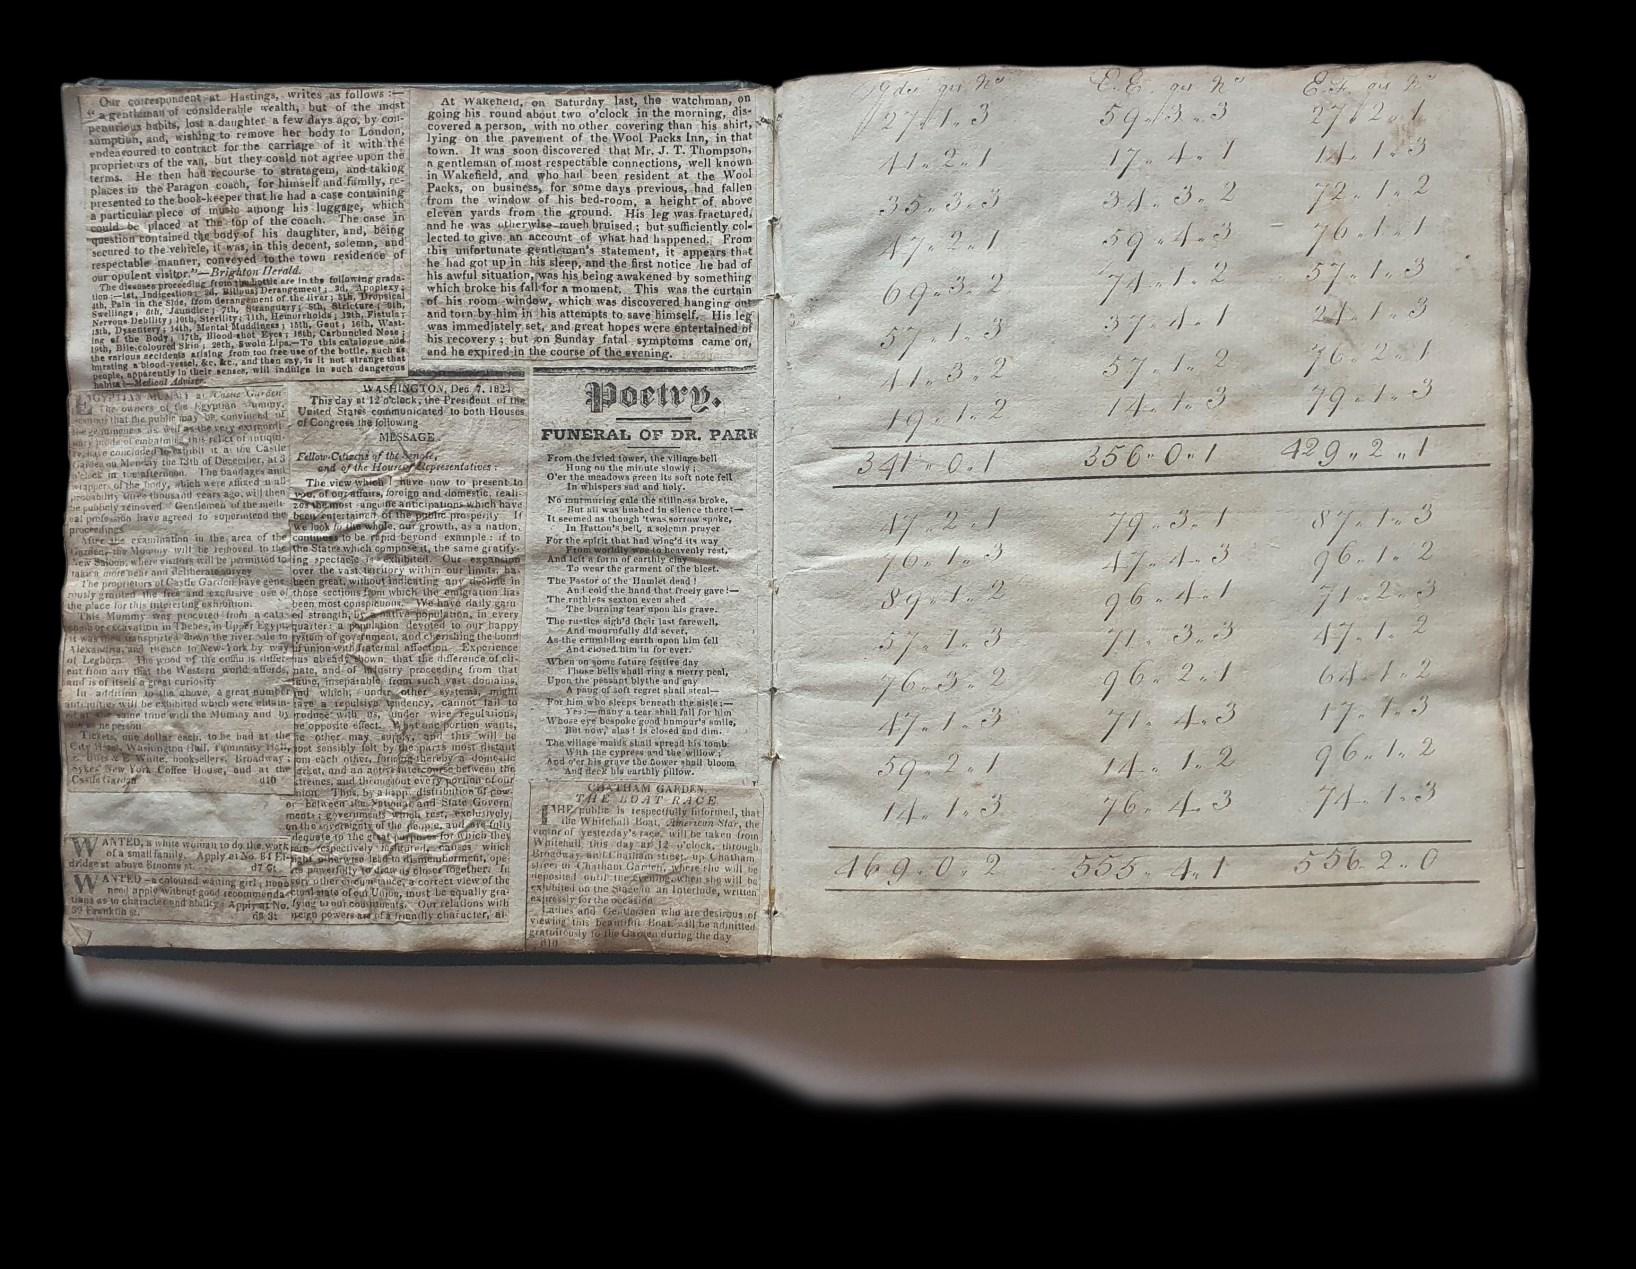 Our correspondent at Hastings, writes as follows :—
"a gentleman of considerable wealth, but of the most
penurious habits, lost a daughter a few days ago, by con-
sumption, and, wishing to remove her body to London,
endeavoured to contract for the carriage of it with the
proprietors of the van, but they could not agree upon the
terms. He then had recourse to stratagem, and taking
places in the Paragon coach, for himself and family, re-
presented to the book-keeper that he had a case containing
a particular piece of music among his luggage, which
could be placed at the top of the coach. The case in
question contained the body of his daughter, and, being
secured to the vehicle, it was, in this decent, solemn, and
respectable manner, conveyed to the town residence of
our opulent visitor."—Brighton Herald.
The diseases proceeding from the bottle are in the following grada-
tion :—1st, Indigestion; 2d, Bilious Derangement; 3d, Apoplexy;
4th, Pain in the Side, from derangement of the liver; 5th, Dropsical
Swellings; 6th, Jaundice; 7th, Stranguary; 8th, Stricture; 9th,
Nervous Debility; 10th, Sterility; 11th, Hemorrhoids; 12th, Fistula;
13th, Dysentery; 14th, Mental Muddiness; 15th, Gout; 16th, Wast-
ing of the Body; 17th, Blood-shot Eyes; 18th, Carbuncled Nose;
19th, Bile-coloured Skin; 20th, Swoln Lips.—To this catalogue add
the various accidents arising from too free use of the bottle, such as
bursting a blood-vessel, &c. &c., and then say, is it not strange that
people, apparently in their senses, will indulge in such dangerous
habits!—Medical Adviser.
EGYPTIAN MUMMY at Castle Garden
The owners of the Egyptian Mummy,
that the public may be convinced of
genuineness as well as the very extraordi-
nary mode of embalming this relict of antiqui-
ty, have concluded to exhibit it at the Castle
Garden on Monday the 13th of December, at 3
o'clock in the afternoon. The bandages and
wrappers of the body, which were affixed in all
probability three thousand years ago, will then
be publicly removed Gentlemen of the medi-
cal profession have agreed to superintend the
proceedings
After the examination in the area of the
Garden, the Mummy will be removed to the
New Saloon, where visitors will be permitted to
take a more near and deliberate survey
The proprietors of Castle Garden have gene-
rously granted the free and exclusive use of
the place for this interesting exhibition.
This Mummy was procured from a cata-
comb or excavation in Thebes, in Upper Egypt,
it was then transported down the river Nile to
Alexandria, and thence to New-York by way
of Leghorn. The wood of the coffin is differ-
ent from any that the Western world affords,
and is of itself a great curiosity
In addition to the above, a great number
antiquities will be exhibited which were obtain-
ed at the same time with the Mummy and by
the same person.
Tickets, one dollar each, to be had at the
City Hotel, Washington Hall, Tammany Hall,
E. Bliss & E White, booksellers, Broadway;
Sykes' New York Coffee House, and at the
Castle Garden d10
WANTED, a white woman to do the work
of a small family. Apply at No. 64 El-
dridge st above Broome st. d7 6t
WANTED—a coloured waiting girl; none
need apply without good recommenda-
tions as to character and ability Apply at No.
59 Franklin st. d8 3t
At Wakefield, on Saturday last, the watchman, on
going his round about two o'clock in the morning, dis-
covered a person, with no other covering than his shirt,
lying on the pavement of the Wool Packs Inn, in that
town. It was soon discovered that Mr. J. T. Thompson,
a gentleman of most respectable connections, well known
in Wakefield, and who had been resident at the Wool
Packs, on business, for some days previous, had fallen
from the window of his bed-room, a height of above
eleven yards from the ground. His leg was fractured,
and he was otherwise much bruised; but sufficiently col-
lected to give an account of what had happened. From
this unfortunate gentleman's statement, it appears that
he had got up in his sleep, and the first notice he had of
his awful situation, was his being awakened by something
which broke his fall for a moment. This was the curtain
of his room window, which was discovered hanging out
and torn by him in his attempts to save himself. His leg
was immediately set, and great hopes were entertained of
his recovery; but on Sunday fatal symptoms came on,
and he expired in the course of the evening.
WASHINGTON, Dec. 7, 1824.
This day at 12 o'clock, the President of the
United States communicated to both Houses
of Congress the following
MESSAGE.
Fellow-Citizens of the Senate,
and of the House of Representatives :
The view which I have now to present to
you, of our affairs, foreign and domestic, reali-
zes the most sanguine anticipations which have
been entertained of the public prosperity. If
we look to the whole, our growth, as a nation,
continues to be rapid beyond example : if to
the States which compose it, the same gratify-
ing spectacle is exhibited. Our expansion
over the vast territory within our limits, has
been great, without indicating any decline in
those sections from which the emigration has
been most conspicuous. We have daily gain-
ed strength, by a native population, in every
quarter; a population devoted to our happy
system of government, and cherishing the bond
of union with fraternal affection. Experience
has already shown, that the difference of cli-
mate, and of industry proceeding from that
cause, inseparable from such vast domains,
and which, under other systems, might
have a repulsive tendency, cannot fail to
produce with us, under wise regulations,
the opposite effect. What one portion wants,
the other may supply, and this will be
most sensibly felt by the parts most distant
from each other, forming thereby a domestic
market, and an active intercourse between the
extremes, and throughout every portion of our
Union. Thus, by a happy distribution of pow-
er between the National and State Govern
ments; governments which rest, exclusively,
on the sovereignty of the people, and are fully
adequate to the great purposes for which they
were respectively instituted, causes which
might otherwise lead to dismemberment, ope-
rate powerfully to draw us closer together. In
every other circumstance, a correct view of the
actual state of our Union, must be equally gra-
tifying to our constituents. Our relations with
foreign powers are of a friendly character, al-
Poetry.
FUNERAL OF DR. PARR
From the ivied tower, the village bell
Hung on the minute slowly;
O'er the meadows green its soft note fell
In whispers sad and holy.
No murmuring gale the stillness broke,
But all was hushed in silence there :—
It seemed as though 'twas sorrow spoke,
In Hatton's bell, a solemn prayer
For the spirit that had wing'd its way
From worldly woe to heavenly rest,
And left a form of earthly clay
To wear the garment of the blest.
The Pastor of the Hamlet dead!
And cold the hand that freely gave!—
The ruthless sexton even shed
The burning tear upon his grave.
The rustics sigh'd their last farewell,
And mournfully did sever,
As the crumbling earth upon him fell
And closed him in for ever.
When on some future festive day
Those bells shall ring a merry peal,
Upon the peasant blythe and gay
A pang of soft regret shall steal—
For him who sleeps beneath the aisle :—
Yes :—many a tear shall fall for him
Whose eye bespoke good humour's smile,
But now, alas! is closed and dim.
The village maids shall spread his tomb
With the cypress and the willow;
And o'er his grave the flower shall bloom
And deck his earthly pillow.
CHATHAM GARDEN.
THE BOAT RACE
THE public is respectfully informed, that
the Whitehall Boat, American Star, the
victor of yesterday's race, will be taken from
Whitehall, this day at 12 o'clock, through
Broadway and Chatham street, up Chatham
street to Chatham Garden, where she will be
deposited until the evening, when she will be
exhibited on the Stage in an Interlude, written
expressly for the occasion
Ladies and Gentlemen who are desirous of
viewing this beautiful Boat, will be admitted
gratuitously to the Garden during the day
d10
Yds qrs Ns E.E. qrs Ns E.F. qrs Ns
27.1.3 59.3.3 27.2.1
41.2.1 17.4.1 14.1.3
35.3.3 34.3.2 72.1.2
47.2.1 59.4.3 76.1.1
69.3.2 74.1.2 57.1.3
57.1.3 37.4.1 24.1.3
41.3.2 57.1.2 76.2.1
19.1.2 14.1.3 79.1.3
341.0.1 356.0.1 429.2.1
47.2.1 79.3.1 87.1.3
76.1.3 47.4.3 96.1.2
89.1.2 96.4.1 71.2.3
57.1.3 71.3.3 47.1.2
76.3.2 96.2.1 64.1.2
47.1.3 71.4.3 17.1.3
59.2.1 14.1.2 96.1.2
14.1.3 76.4.3 74.1.3
469.0.2 555.4.1 556.2.0